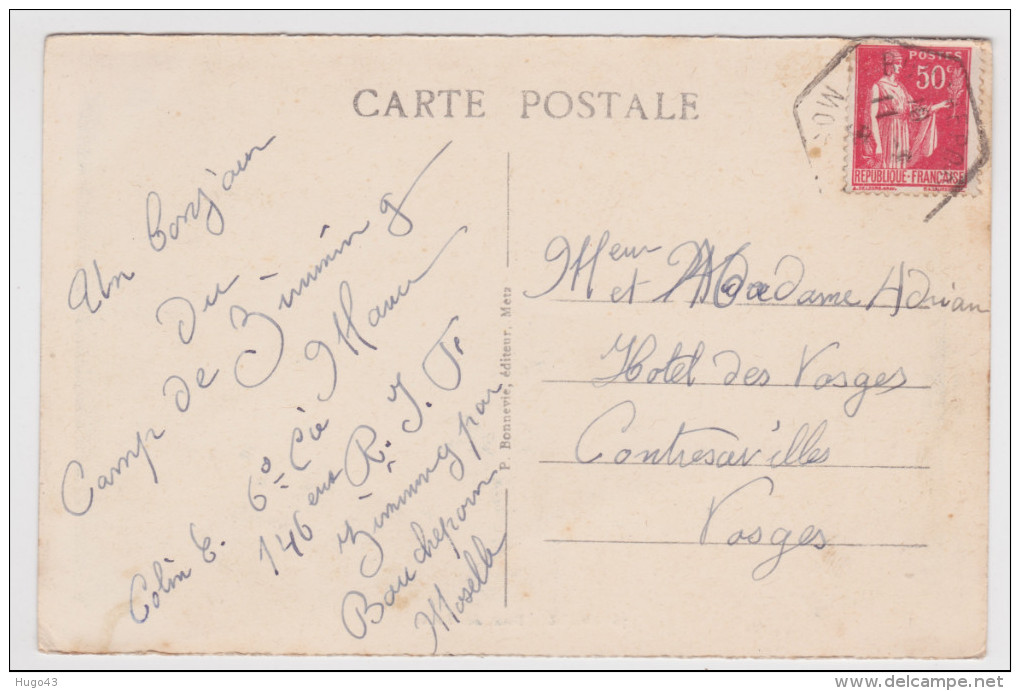 CARTE POSTALE
POSTES
50c
REPUBLIQUE-FRANÇAISE
Un bonjour
du
Camp de Zimming
6º Cie
146eme R. I. F.
Zimming par
Boucheporn
Moselle
Colin E.
P. Bonnevie, éditeur, Metz
Meur
et Madame Adrian
Hotel des Vosges
Contrexevilles
Vosges
Hugo43
delcampe.net